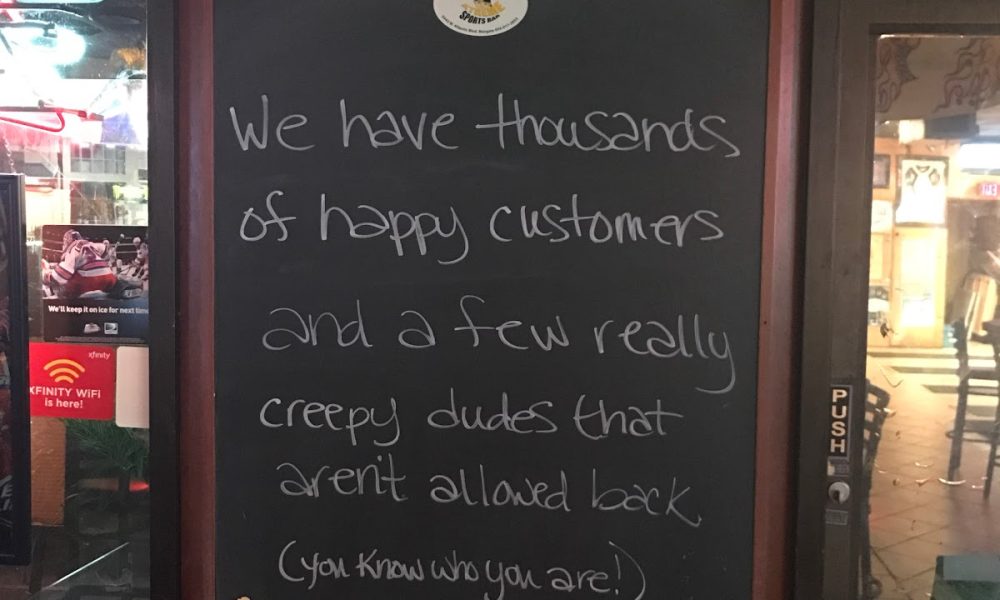 SPORTS BAR
We have thousands
of happy customers
and a few really
creepy dudes that
aren't allowed back
(you know who you are!)
We'll keep it on ice for next time
xfinity
XFINITY WiFi
is here!
PUSH